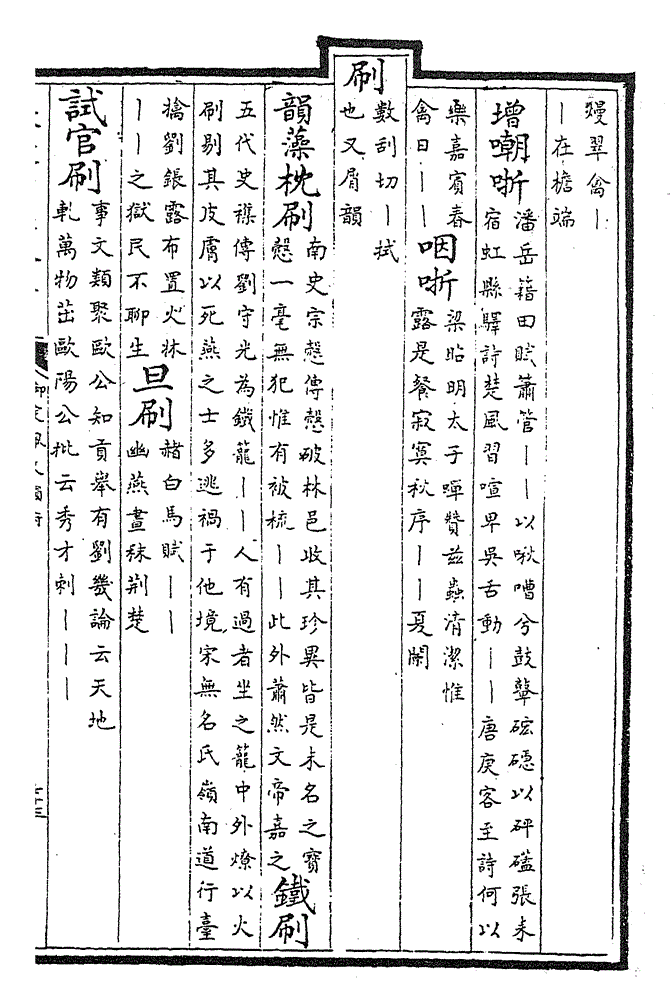 熳翠禽丨
丨在檐端
增嘲哳
潘岳籍田賦簫管丨丨以啾嘈兮鼓鼙硡隱以砰磕張耒
宿虹縣驛詩楚風習喧卑吳舌動丨丨唐庚客至詩何以
樂嘉賓春
禽日丨丨
咽哳
梁昭明太子蟬贊兹蟲清潔惟
露是餐寂寞秋序丨丨夏闌
刷
數刮切丨拭
也又屑韻
韻藻枕刷
南史宗愨傳愨破林邑收其珍異皆是未名之寶
愨一毫無犯惟有被梳丨丨此外蕭然文帝嘉之
鐵刷
五代史襍傳劉守光為鐵籠丨丨人有過者坐之籠中外燎以火
刷剔其皮膚以死燕之士多逃禍于他境宋無名氏嶺南道行臺
擒劉鋹露布置火牀
丨丨之獄民不聊生
旦刷
赭白馬賦丨丨
幽燕晝秣荆楚
試官刷
事文類聚歐公知貢舉有劉幾論云天地
軋萬物茁歐陽公批云秀才剌丨丨丨